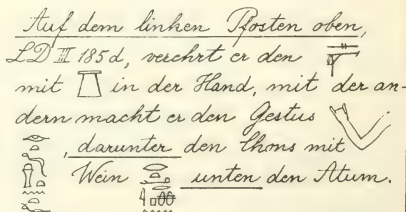 Auf dem linken Pfosten oben,
LD III 185 d, verehrt er den
mit in der Hand, mit der an-
dern macht er den Gestus
, darunter den Chons mit
Wein unten den Atum.